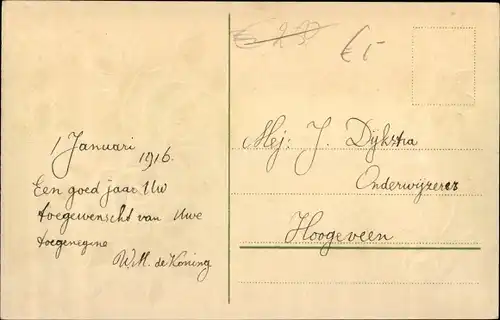 € 2 50
€ 5
1 Januari
1916.
Een goed jaar Uw
toegewenscht van Uwe
toegenegene
W.M. de Koning
Mej: J. Dijkstra
Onderwijzeres
Hoogeveen